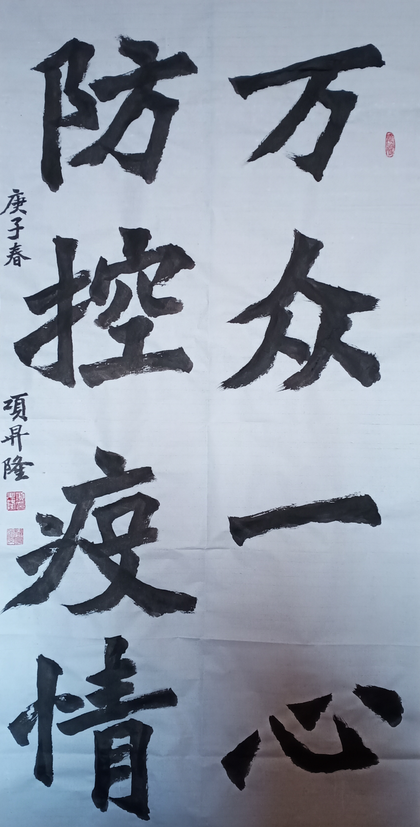 万众一心
防控疫情
庚子春
项昇隆